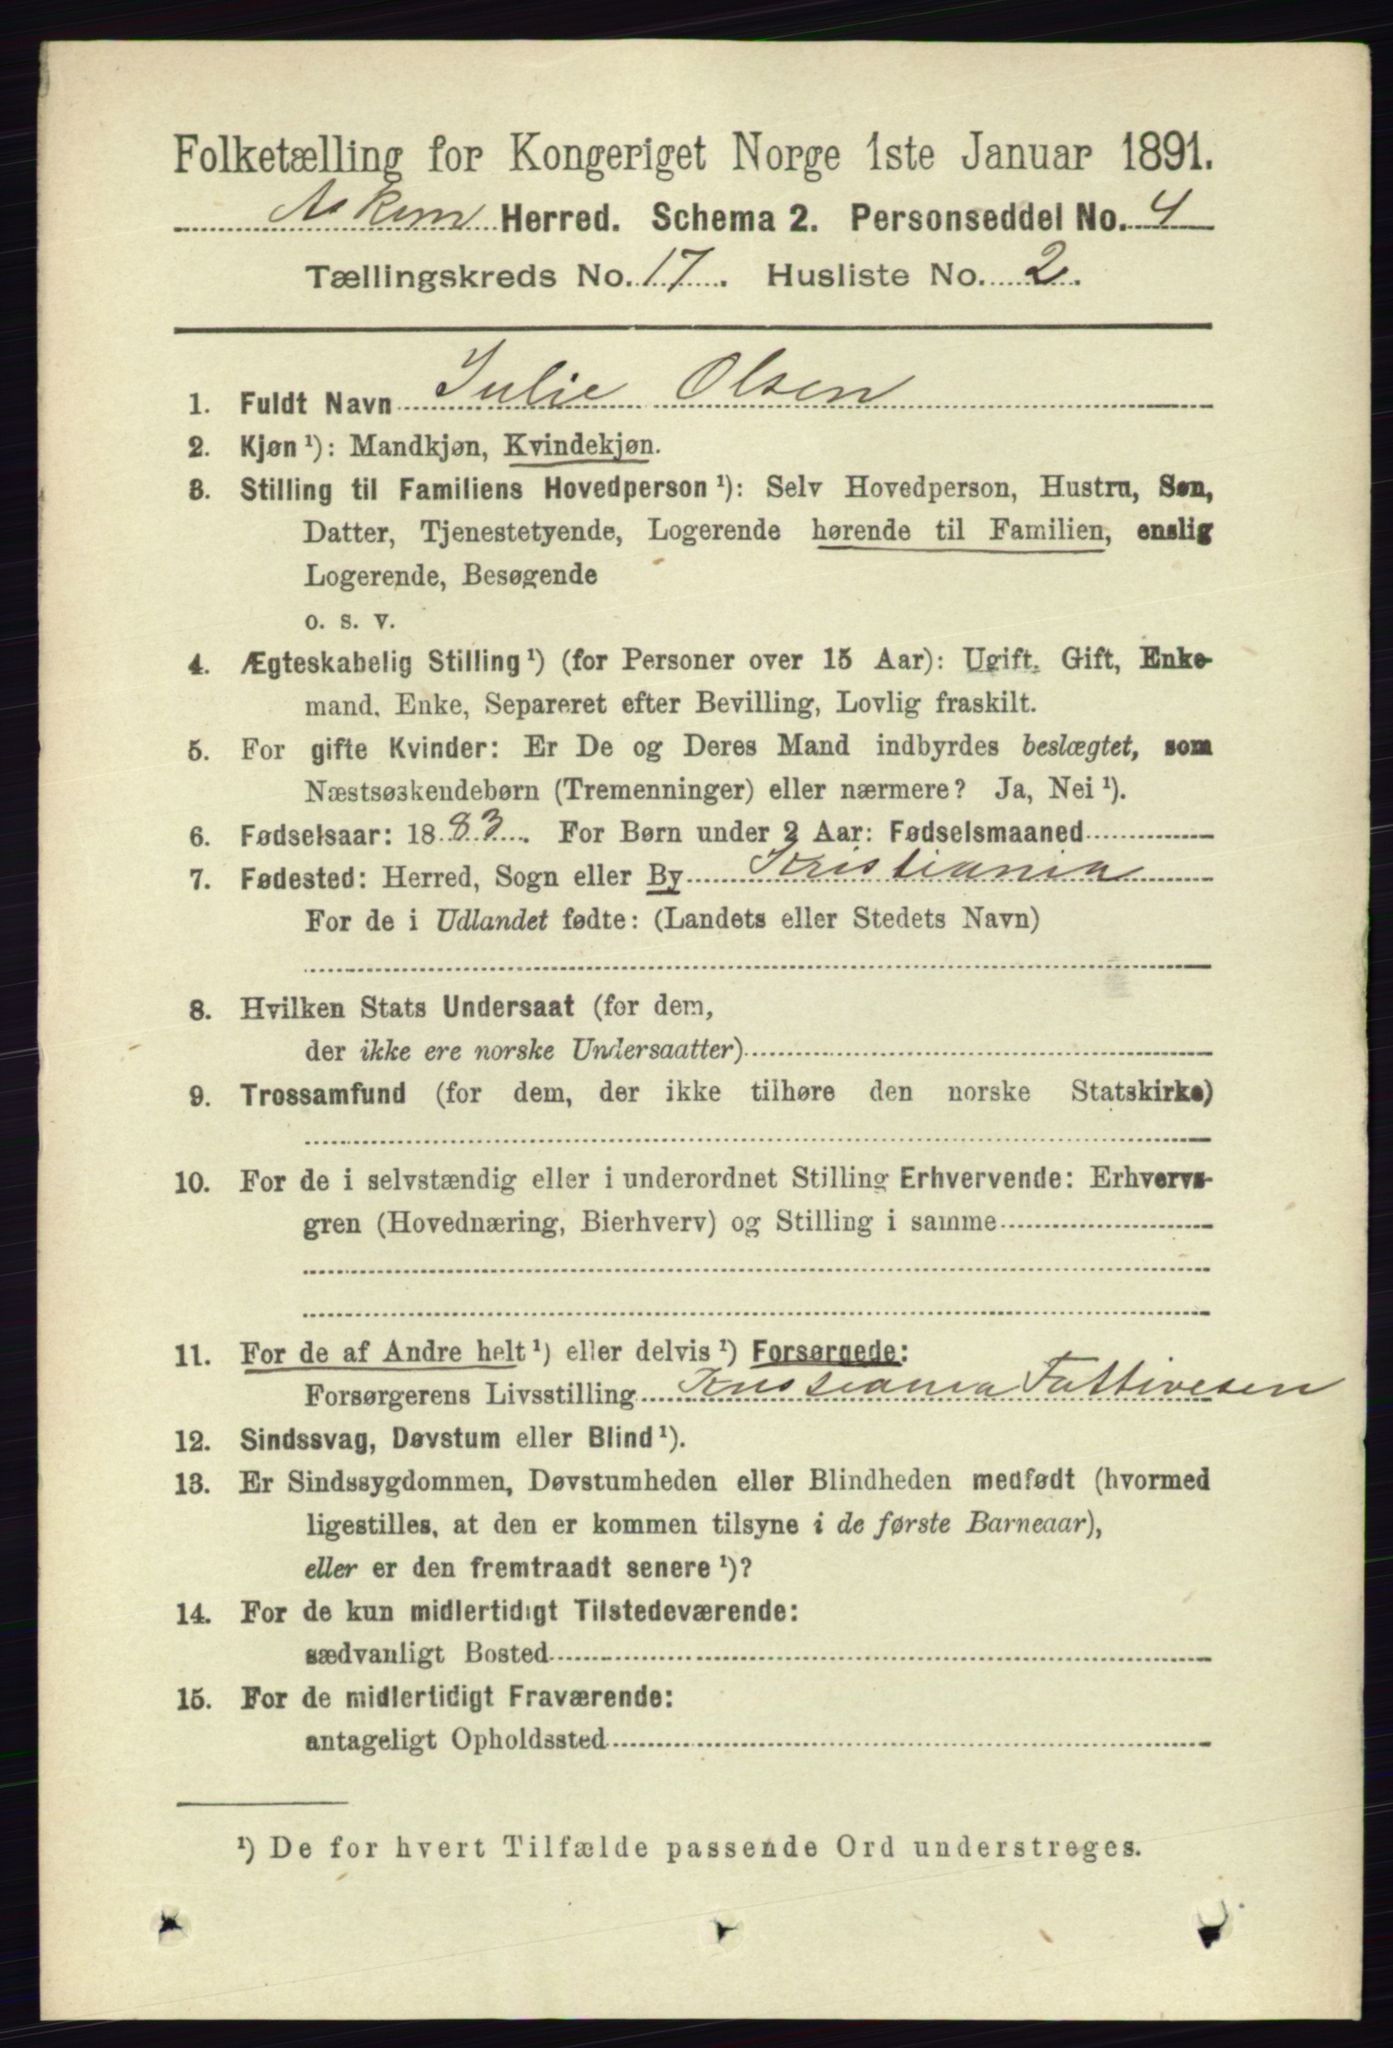 Folketælling for Kongeriget Norge 1ste Januar 1891.
Askim Herred. Schema 2. Personseddel No. 4
Tællingskreds No. 17. Husliste No. 2.
1. Fuldt Navn Julie Olsen
2. Kjøn ¹): Mandkjøn, Kvindekjøn.
3. Stilling til Familiens Hovedperson ¹): Selv Hovedperson, Hustru, Søn,
Datter, Tjenestetyende, Logerende hørende til Familien, enslig
Logerende, Besøgende
o. s. v.
4. Ægteskabelig Stilling ¹) (for Personer over 15 Aar): Ugift, Gift, Enke-
mand, Enke, Separeret efter Bevilling, Lovlig fraskilt.
5. For gifte Kvinder: Er De og Deres Mand indbyrdes beslægtet, som
Næstsøskendebørn (Tremenninger) eller nærmere? Ja, Nei ¹).
6. Fødselsaar: 1883. For Børn under 2 Aar: Fødselsmaaned
7. Fødested: Herred, Sogn eller By Kristiania
For de i Udlandet fødte: (Landets eller Stedets Navn)
8. Hvilken Stats Undersaat (for dem,
der ikke ere norske Undersaatter)
9. Trossamfund (for dem, der ikke tilhøre den norske Statskirke)
10. For de i selvstændig eller i underordnet Stilling Erhvervende: Erhvervs-
gren (Hovednæring, Bierhverv) og Stilling i samme
11. For de af Andre helt ¹) eller delvis ¹) Forsørgede:
Forsørgerens Livsstilling Kristiania Fattivesen
12. Sindssvag, Døvstum eller Blind ¹).
13. Er Sindssygdommen, Døvstumheden eller Blindheden medfødt (hvormed
ligestilles, at den er kommen tilsyne i de første Barneaar),
eller er den fremtraadt senere ¹)?
14. For de kun midlertidigt Tilstedeværende:
sædvanligt Bosted
15. For de midlertidigt Fraværende:
antageligt Opholdssted
¹) De for hvert Tilfælde passende Ord understreges.